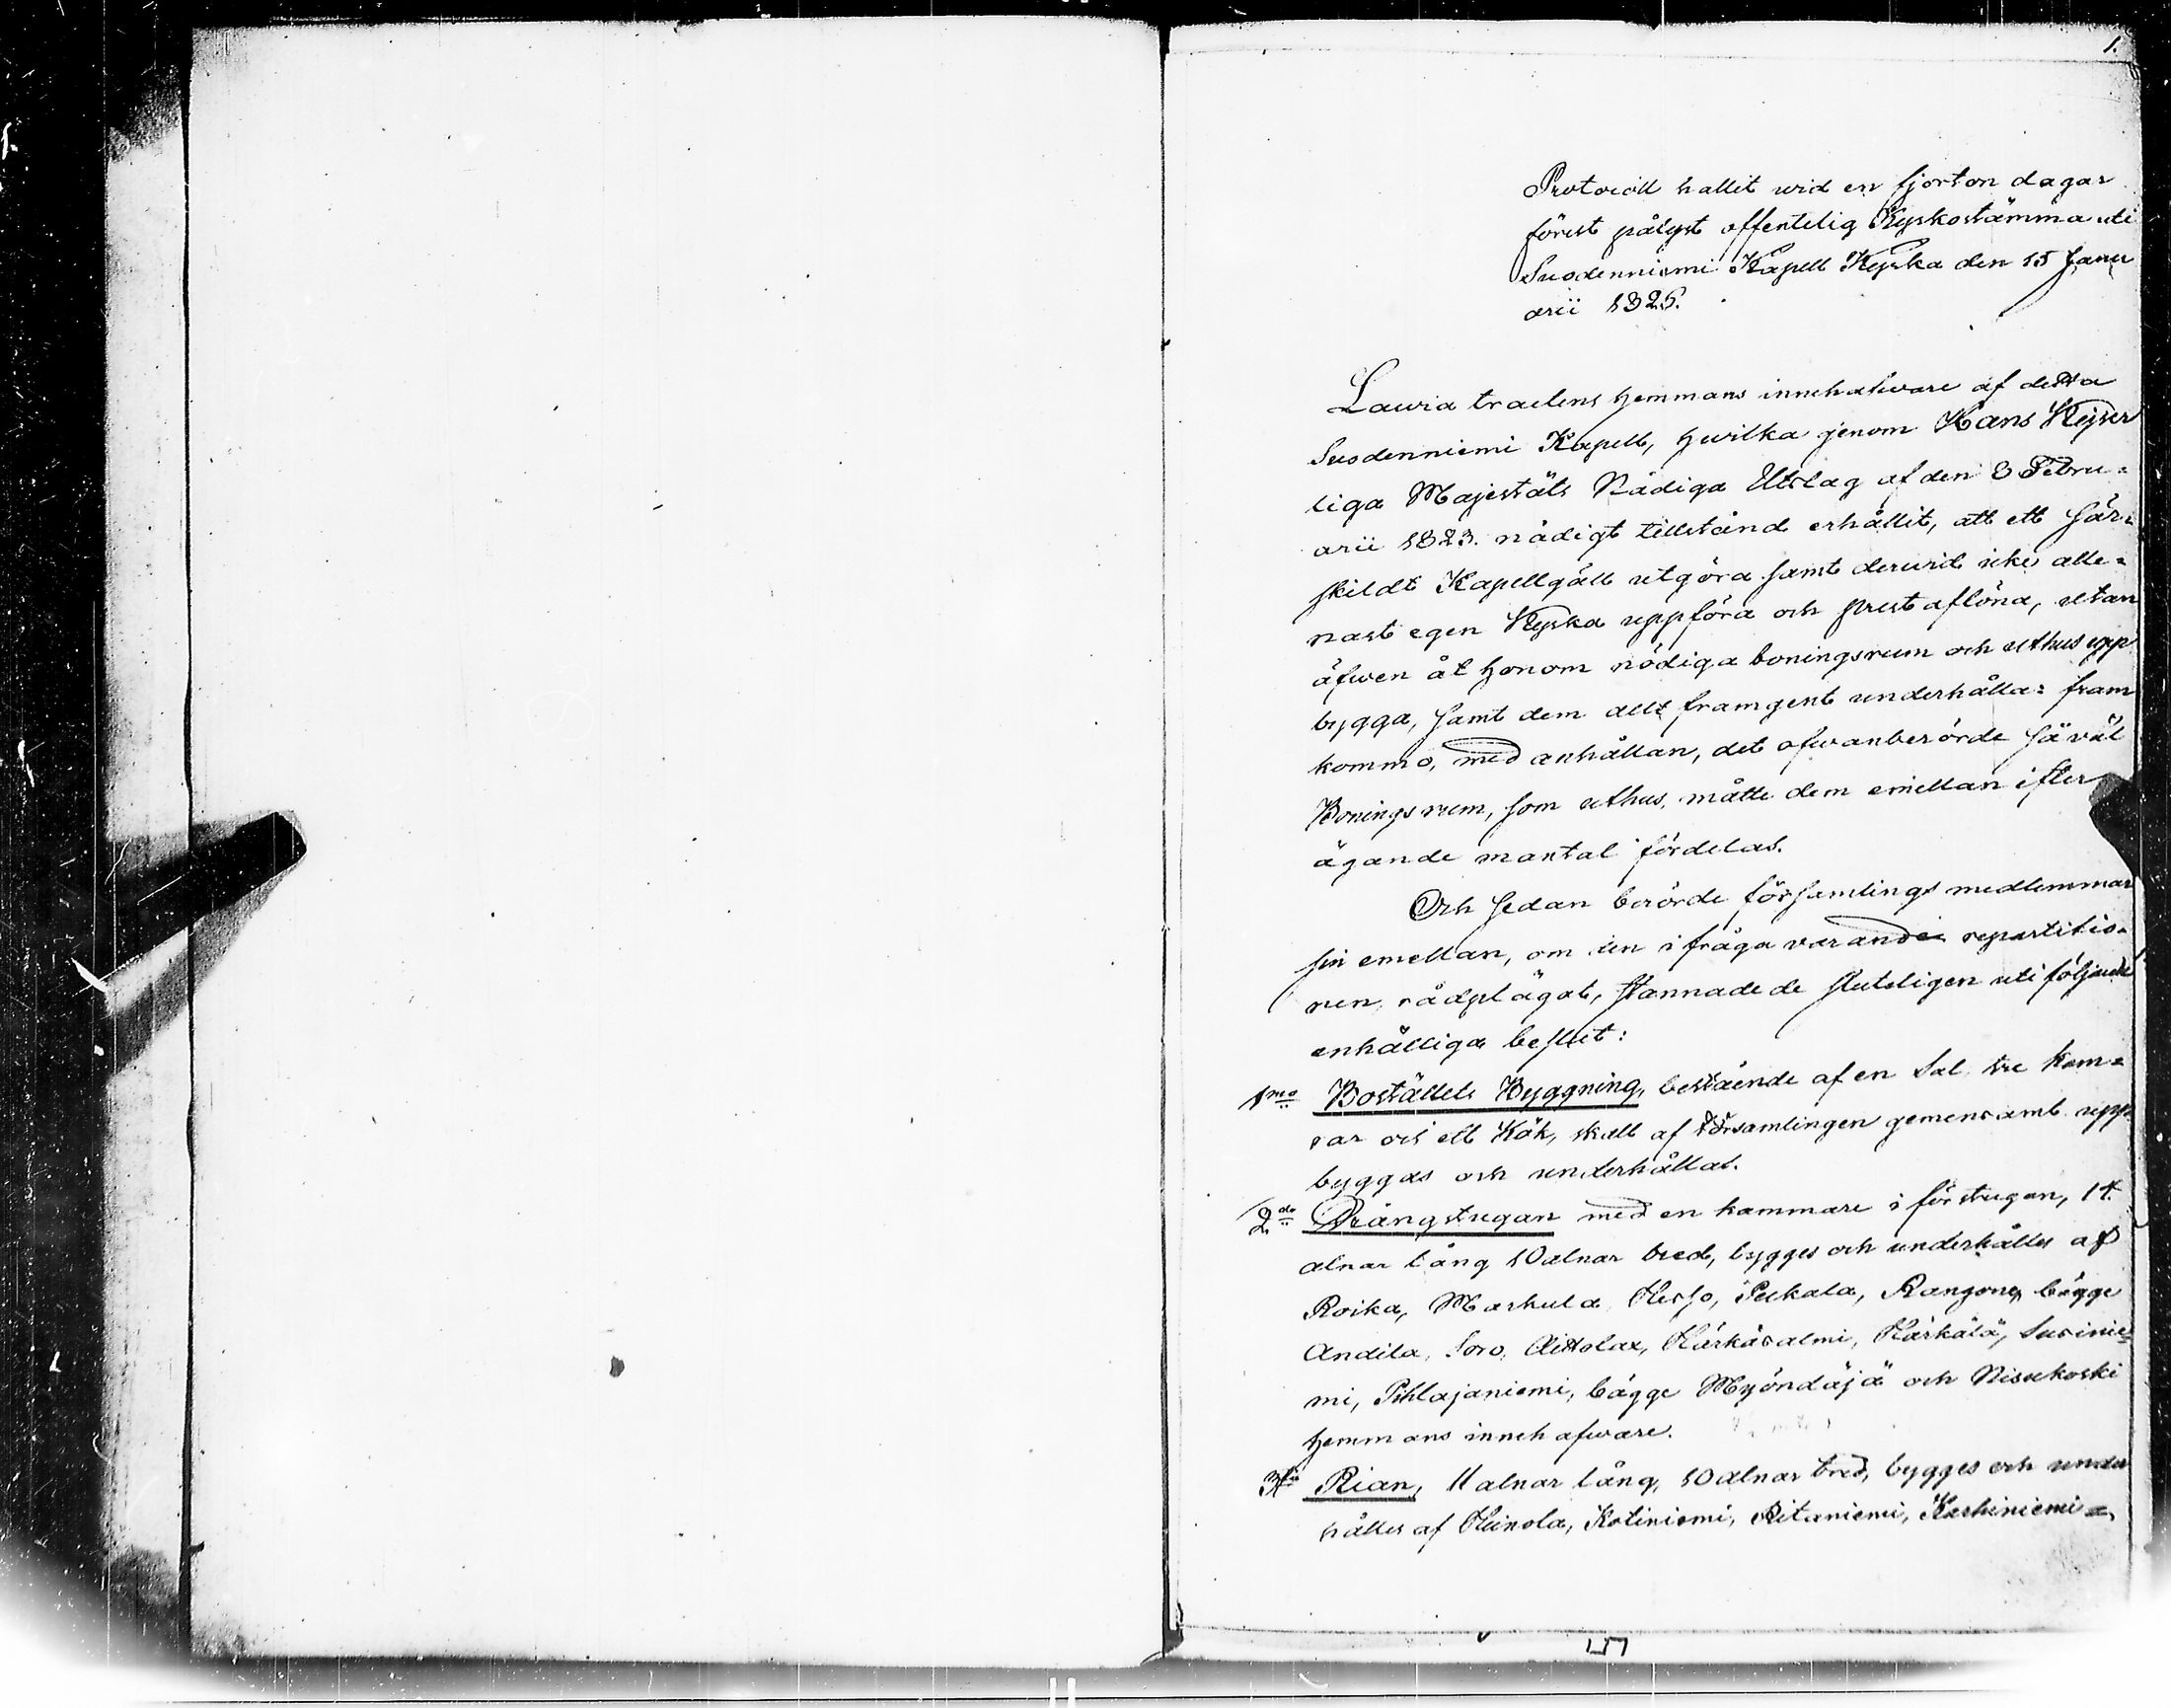 1.
Protocoll hallit wid en fjorton dagar
förut pålyst offentelig Kyrkostämma uti
Suodenniemi Kapell Kyrka den 15 Janu
arii 1825.
Lauvia tractens hemmans innehafware af detta
Suodenniemi Kapell, hwilka genom Hans Kejser
liga Majestäts Nådiga Utslag af den 8 Febru=
arii 1823. nådigt tillstånd erhållit, att ett sär=
skildt Kapellgäll utgöra samt derwid icke alle=
nast egen Kyrka uppföra och prest aflöna, utan
äfwen åt honom nödiga boningsrum och uthus upp
bygga, samt dem allt framgent underhålla: fram
kommo, med anhållan, det ofwanberörde såväl
Boningsrum, som uthus, måtte dem emellan efter
ägande mantal fördelas.
Och sedan berörde församlings medlemmar
sin emellan, om den i fråga varande repartitio=
nen, rådplägat, stannade de sluteligen uti följande
enhälliga beslut:
1mo Boställets Byggning, bestående af en Sal tre kam=
rar och ett Kök, skall af Församlingen gemensamt upp=
byggas och underhållas.
2do Drängstugan med en kammare i förstugan, 14
alnar lång 10 alnar bred, bygges och underhålles af
Roika, Markula, Kesjo, Pukala, Rangone, bägge
Andila, Soro, Aittolax, Kärkäsalmi, Kärkälä, Susinie=
mi, Pihlajaniemi, bägge Myöndäjä och Nisukoski
hemmans innehafware.
3tio Rian, 11 alnar lång, 10 alnar bred, bygges och under
hålles af Heinola, Kotiniemi, Ritaniemi, Karhiniemi=